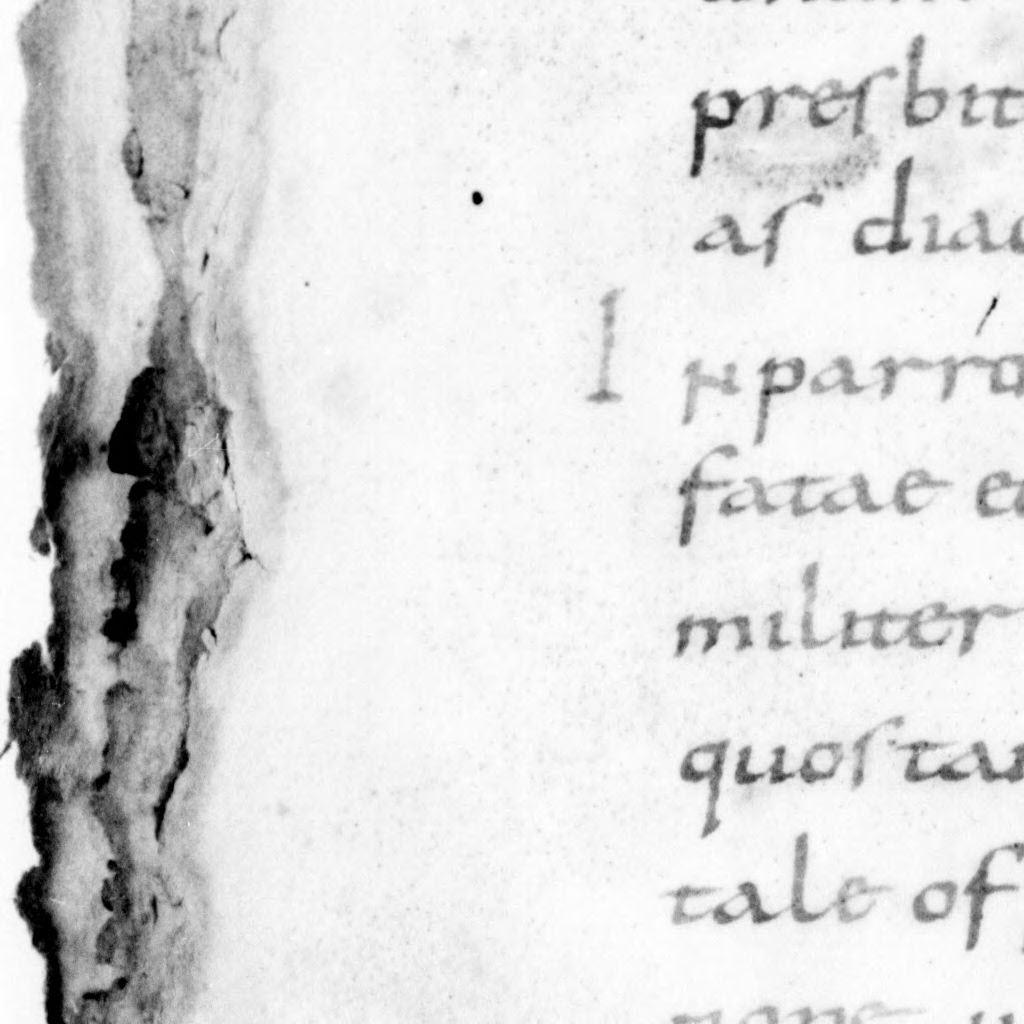 presbit
as diac
In parro
fatae et
militer
quos tan
tale of